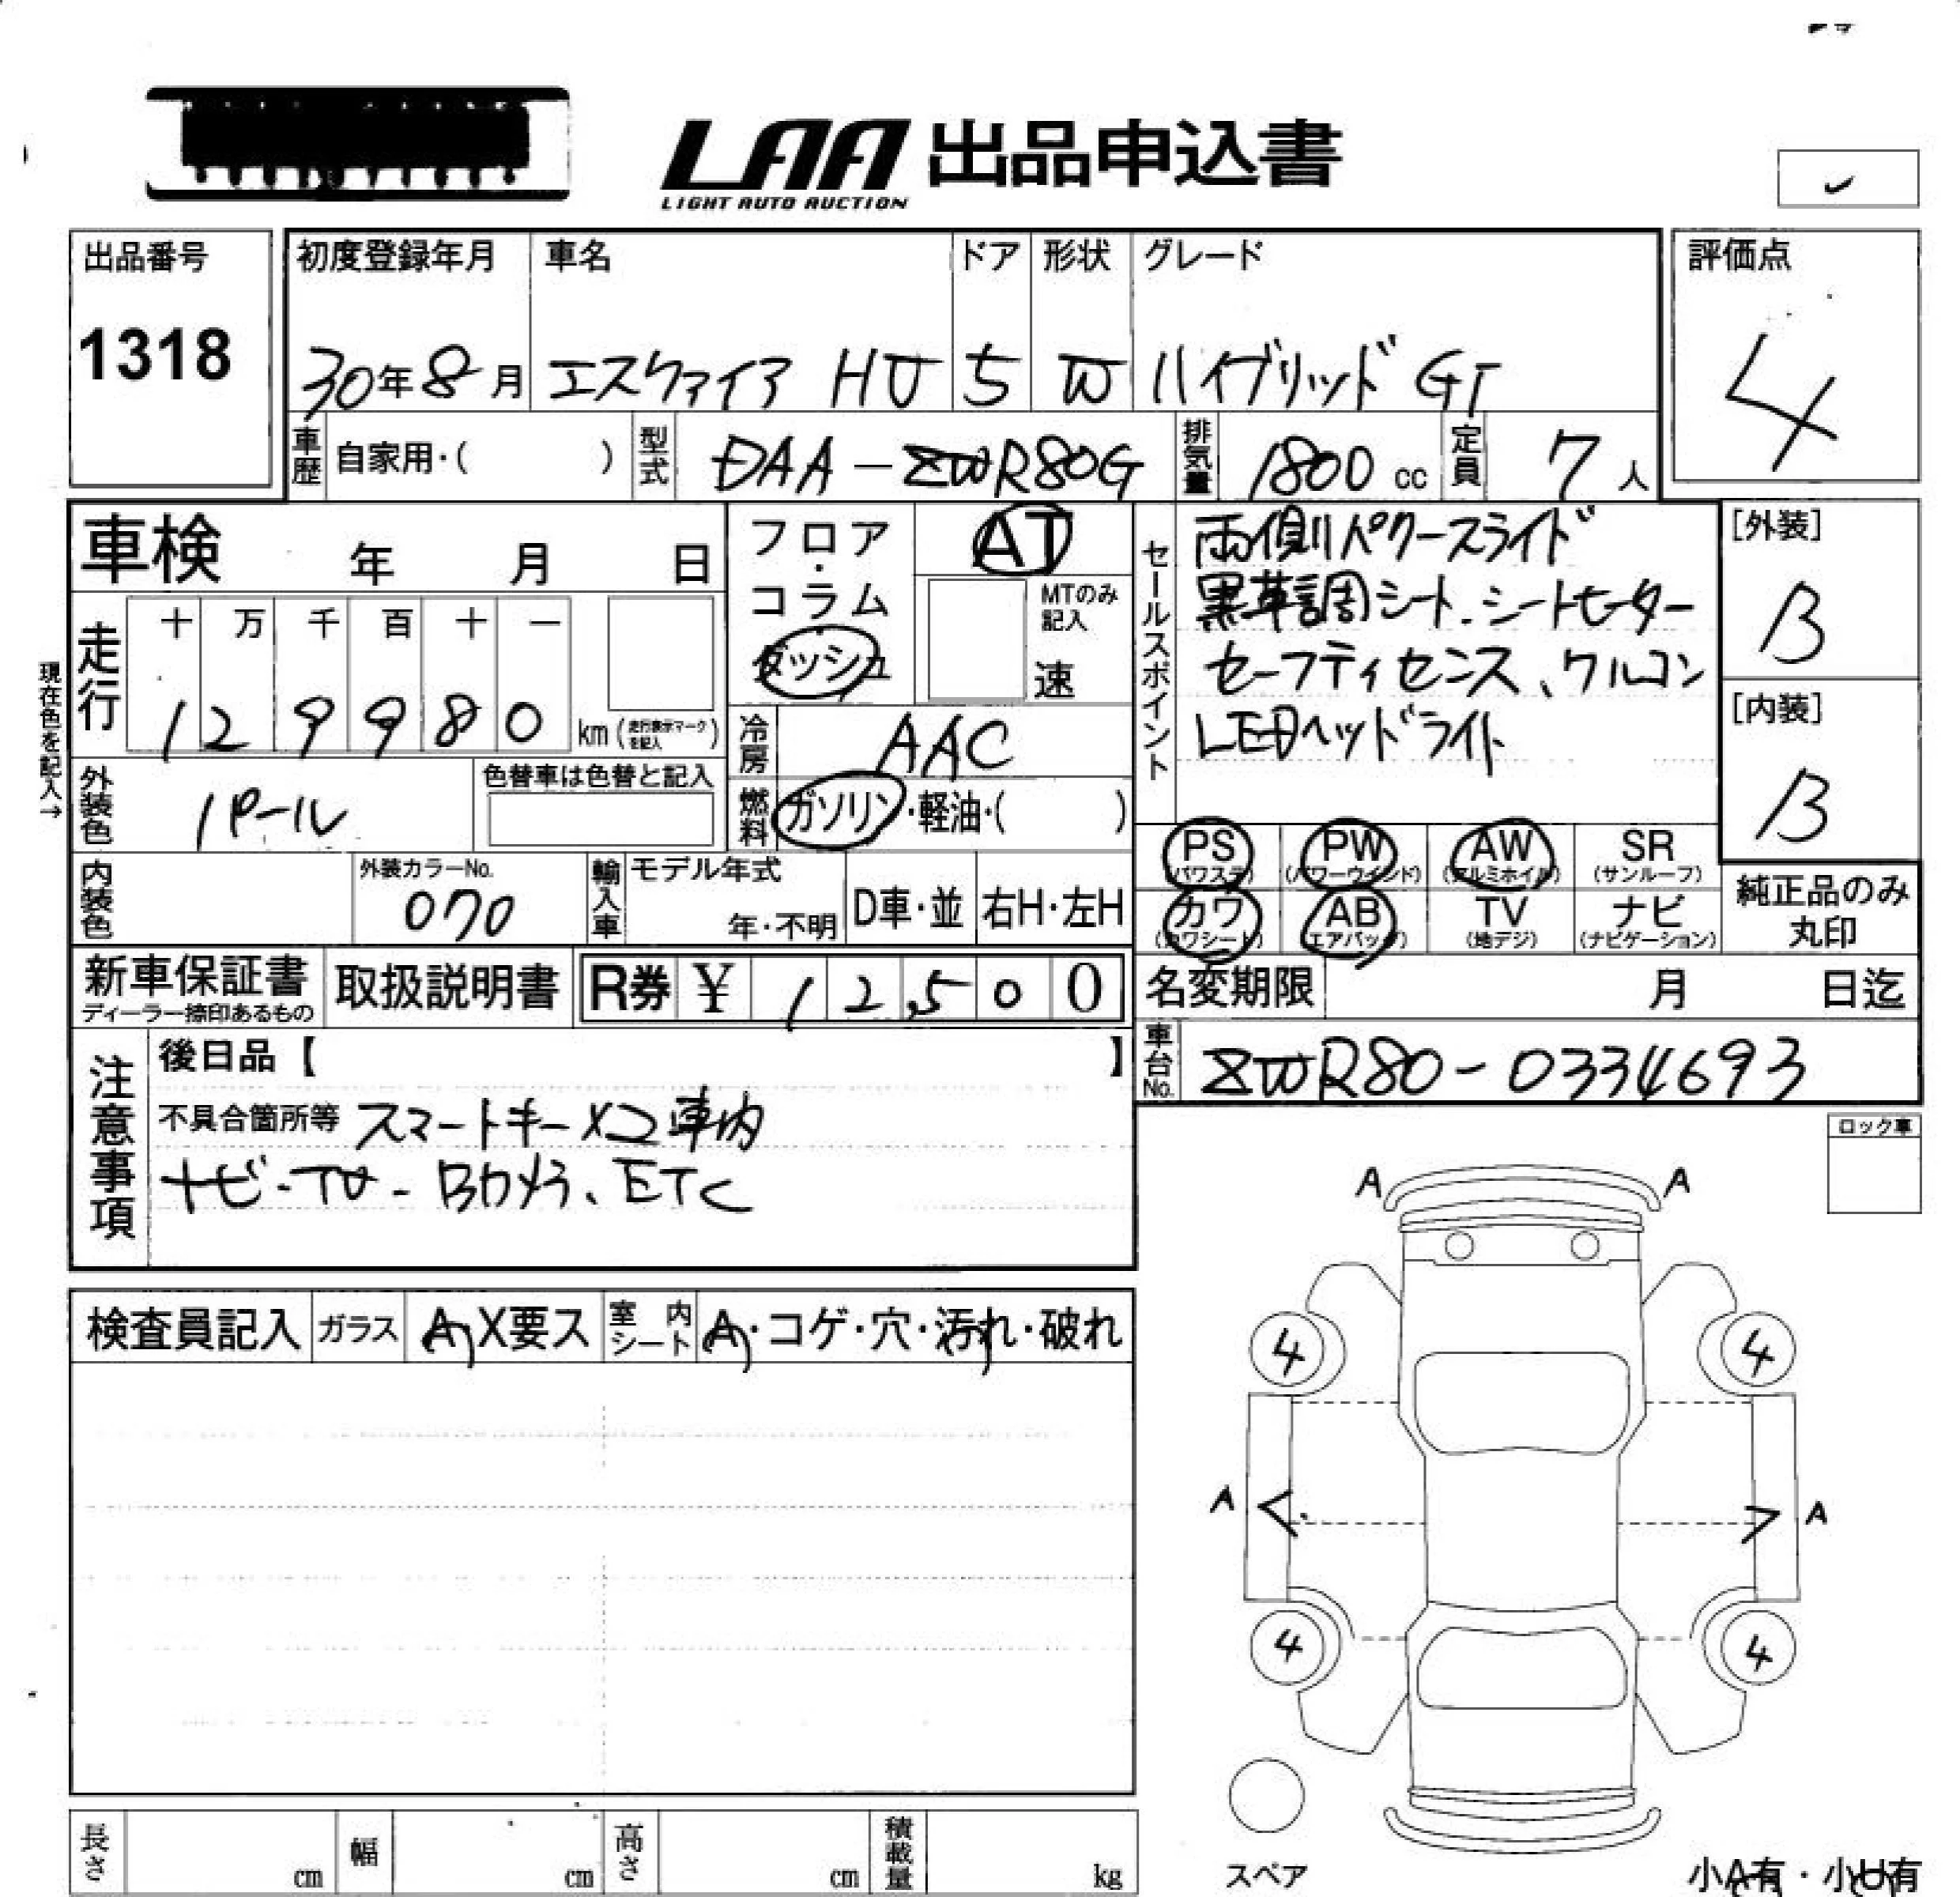 LAA 出品申込書
LIGHT AUTO AUCTION
出品番号
1318
初度登録年月 車名 ドア 形状 グレード
30年8月 エスクァイア HV 5 W ハイブリッド Gi
評価点
4
車歴 自家用・( ) 型式 DAA-ZWR80G 排気量 1800 cc 定員 7人
車検 年 月 日
走行 十 万 千 百 十 一
129980 km (走行表示マークを記入)
現在色を記入→
外装色 パール
色替車は色替と記入
内装色
外装カラーNo.
070
フロア・コラム
ダッシュ
AT
MTのみ記入
速
冷房 AAC
燃料 ガソリン・軽油・( )
輸入車 モデル年式
年・不明 D車・並 右H・左H
セールスポイント
両側パワースライド
黒革調シート、シートヒーター
セーフティセンス、クルコン
LEDヘッドライト
[外装]
B
[内装]
B
PS PW AW SR
(パワステ) (パワーウインド) (アルミホイル) (サンルーフ)
カワ AB TV ナビ
(カワシート) (エアバッグ) (地デジ) (ナビゲーション)
純正品のみ
丸印
新車保証書
ディーラー捺印あるもの
取扱説明書
R券 ¥ 12,500
名変期限 月 日迄
車台No. ZWR80-0334693
注意事項
後日品【 】
不具合箇所等 スマートキー×2車内
ナビ-TV-Bカメラ、ETC
ロック車
検査員記入 ガラス A・X要ス 室内シート A・コゲ・穴・汚れ・破れ
A A
4 4
A < > A
4 4
スペア
小A有・小U有
長さ cm 幅 cm 高さ cm 積載量 kg